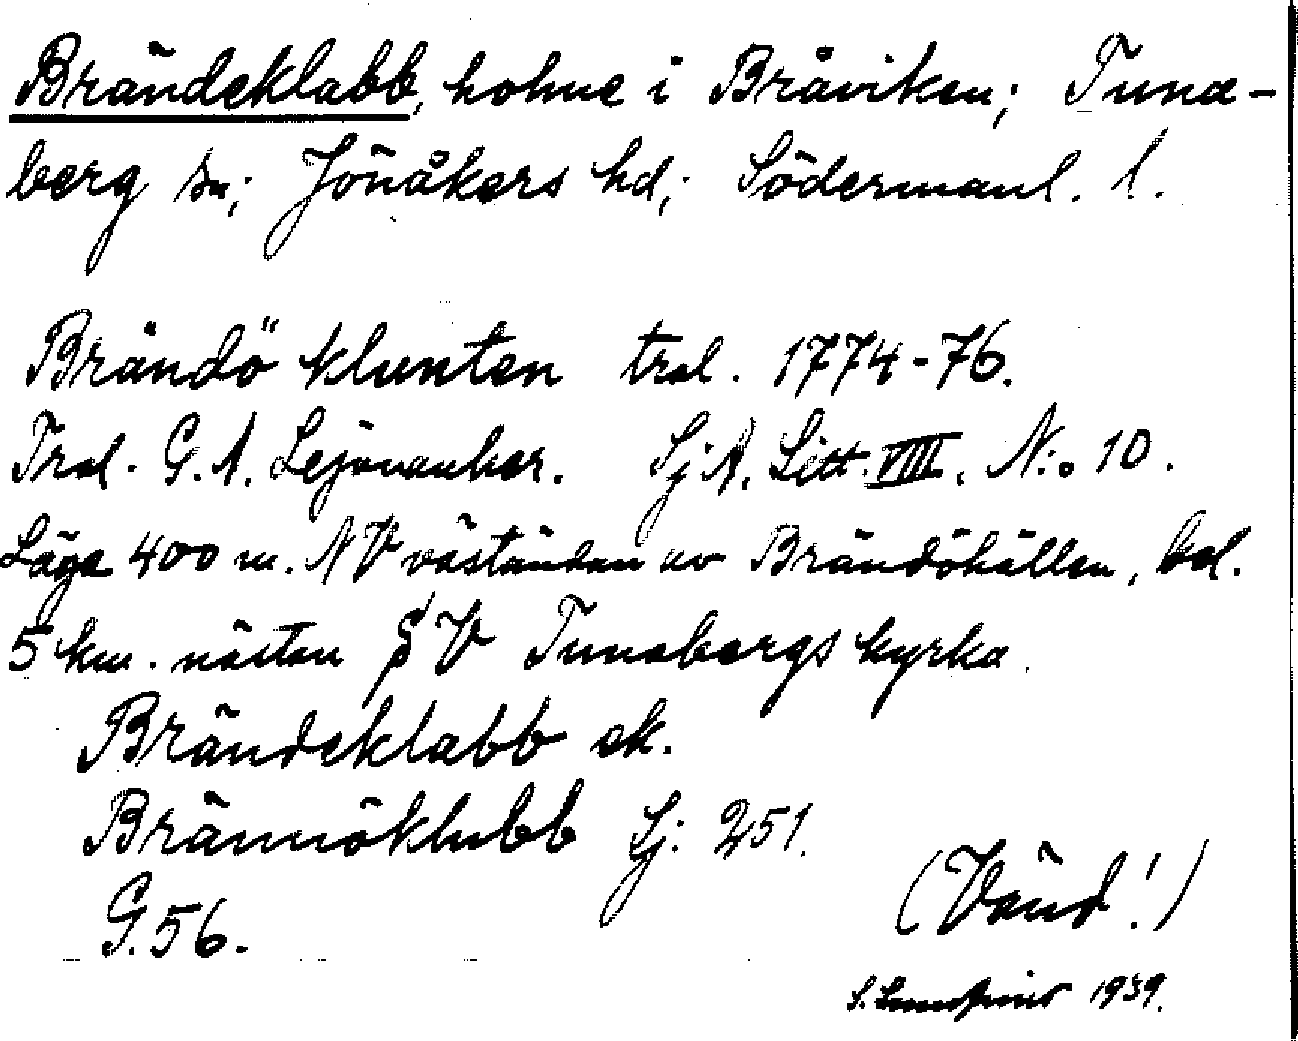 Brändeklabb, holme i Bråviken; Tuna-
berg sn; Jönåkers hd; Södermanl. l.
Brändö klunten trol. 1774-76.
Trol. G. A. Lejonanker. SjA. Litt. VIII. N:o 10.
Läge 400 m. NV västanden av Brändöhällen, bel.
5 km. nästan V Tunabergs kyrka.
Brändeklabb ek.
Brännöklubb Sj: 251.
G. 56.
(Vänd!)
S. 1939.